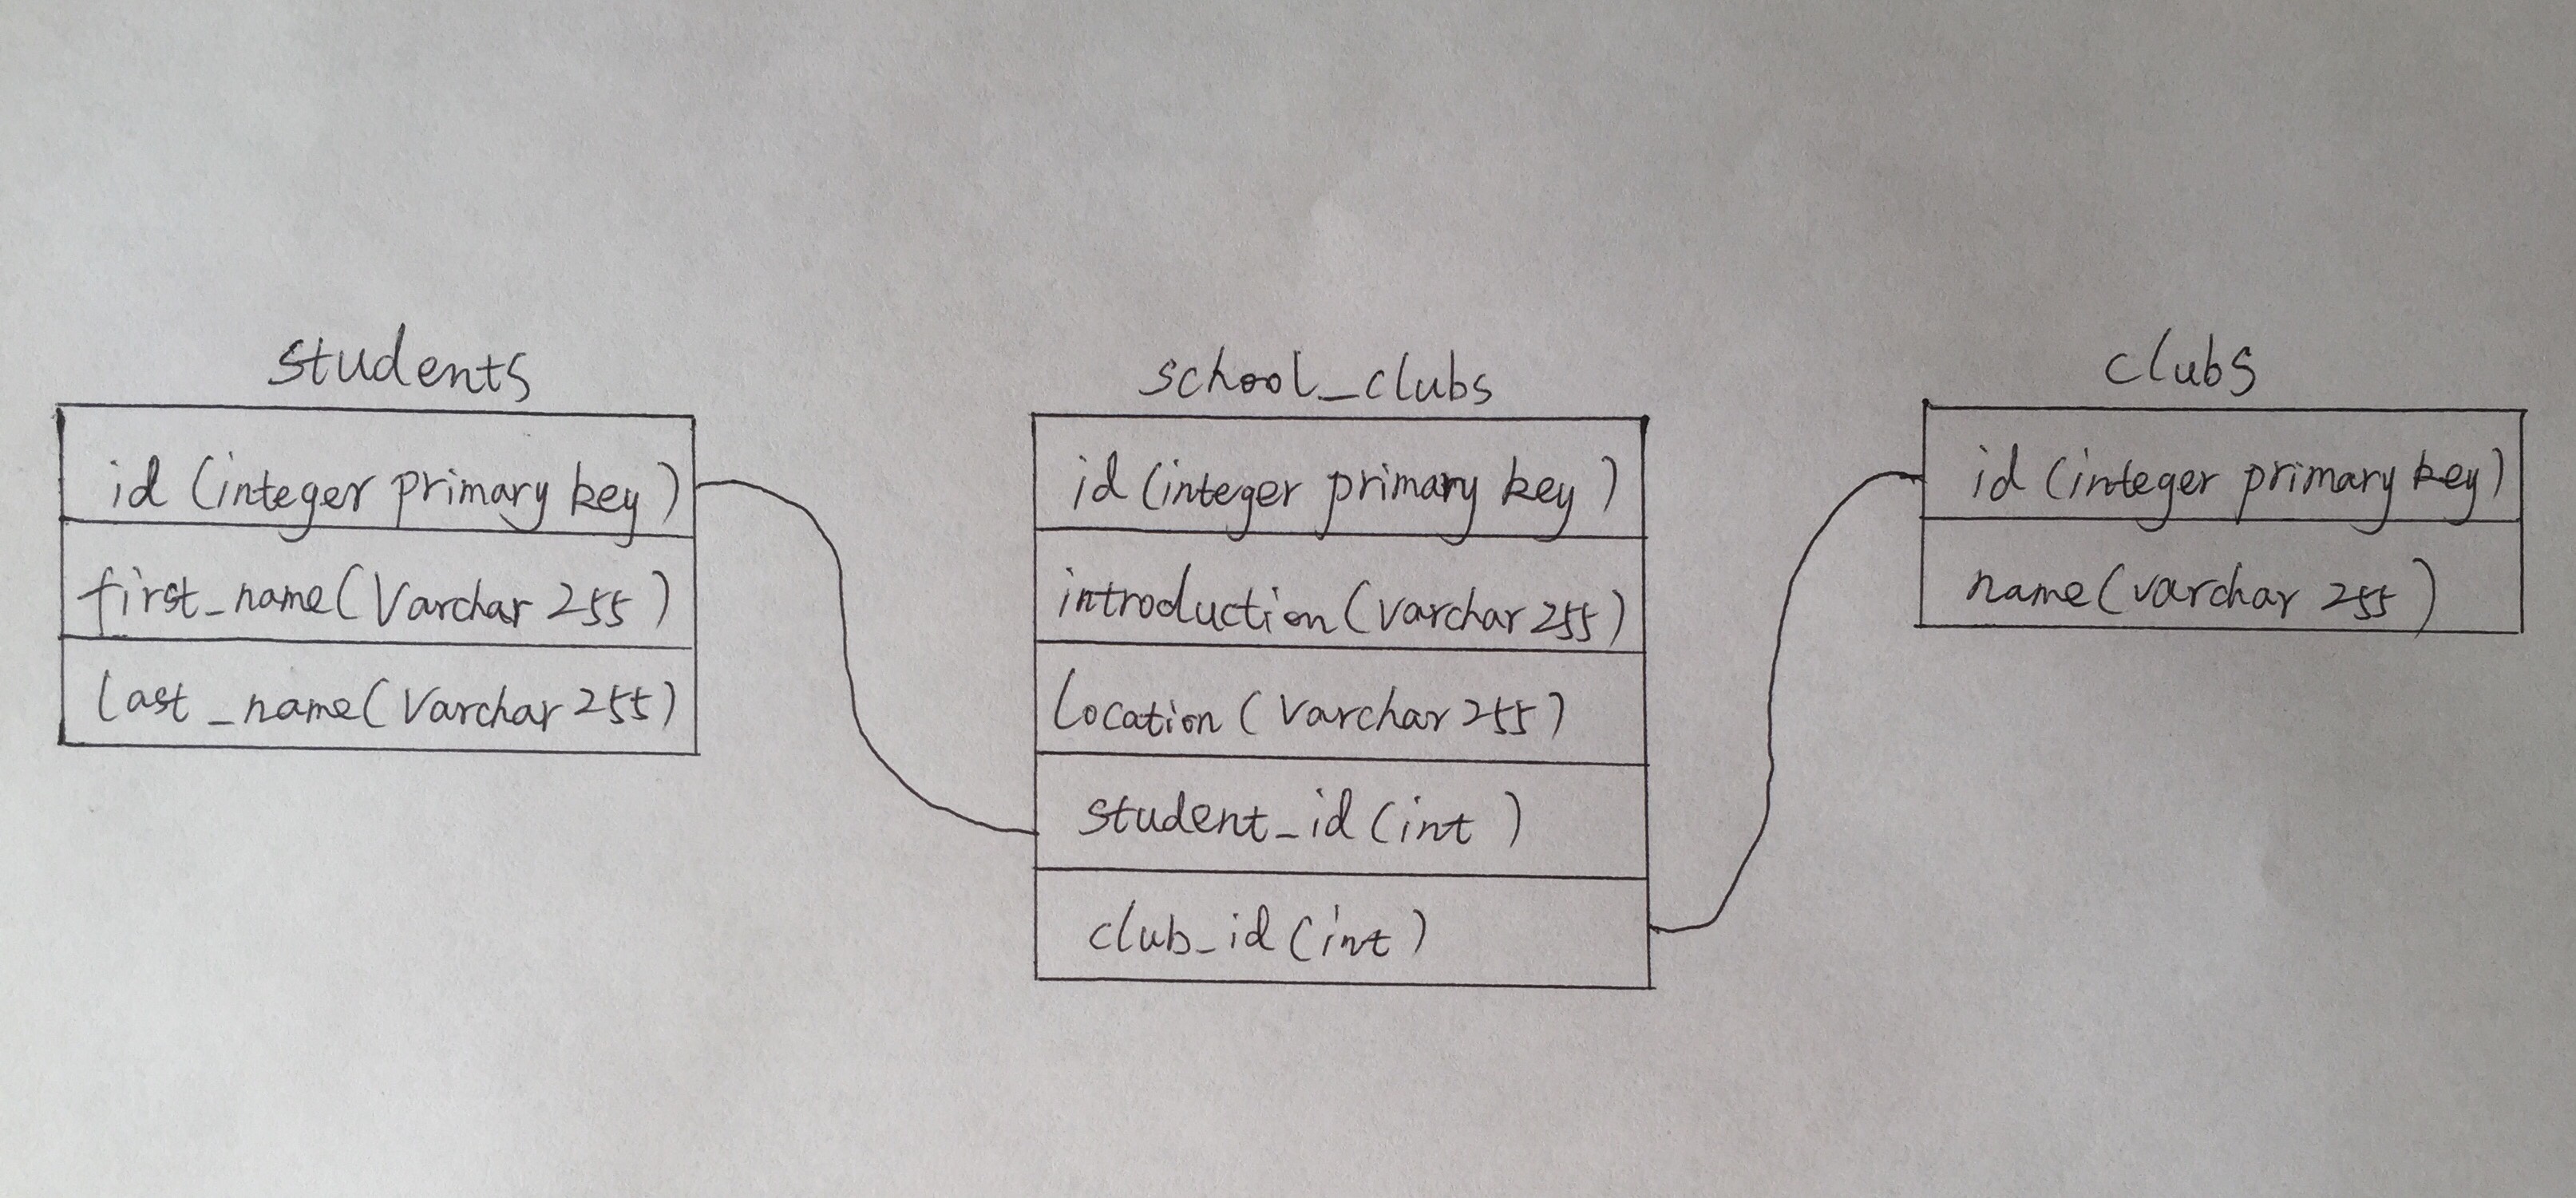 students
id (integer primary key)
first_name (Varchar 255)
last_name (Varchar 255)
school_clubs
id (integer primary key)
introduction (varchar 255)
location (varchar 255)
student_id (int)
club_id (int)
clubs
id (integer primary key)
name (varchar 255)